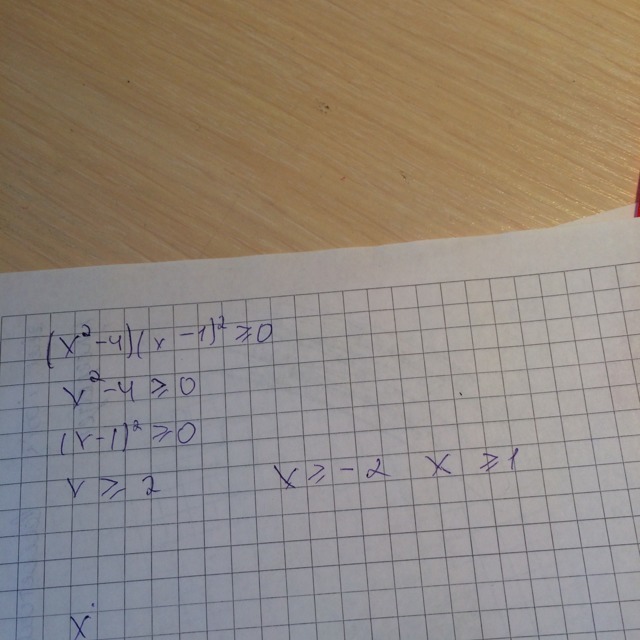 (x²-4)(x-1)²≥0
x²-4≥0
(x-1)²≥0
x≥2 x≥-2 x≥1
x